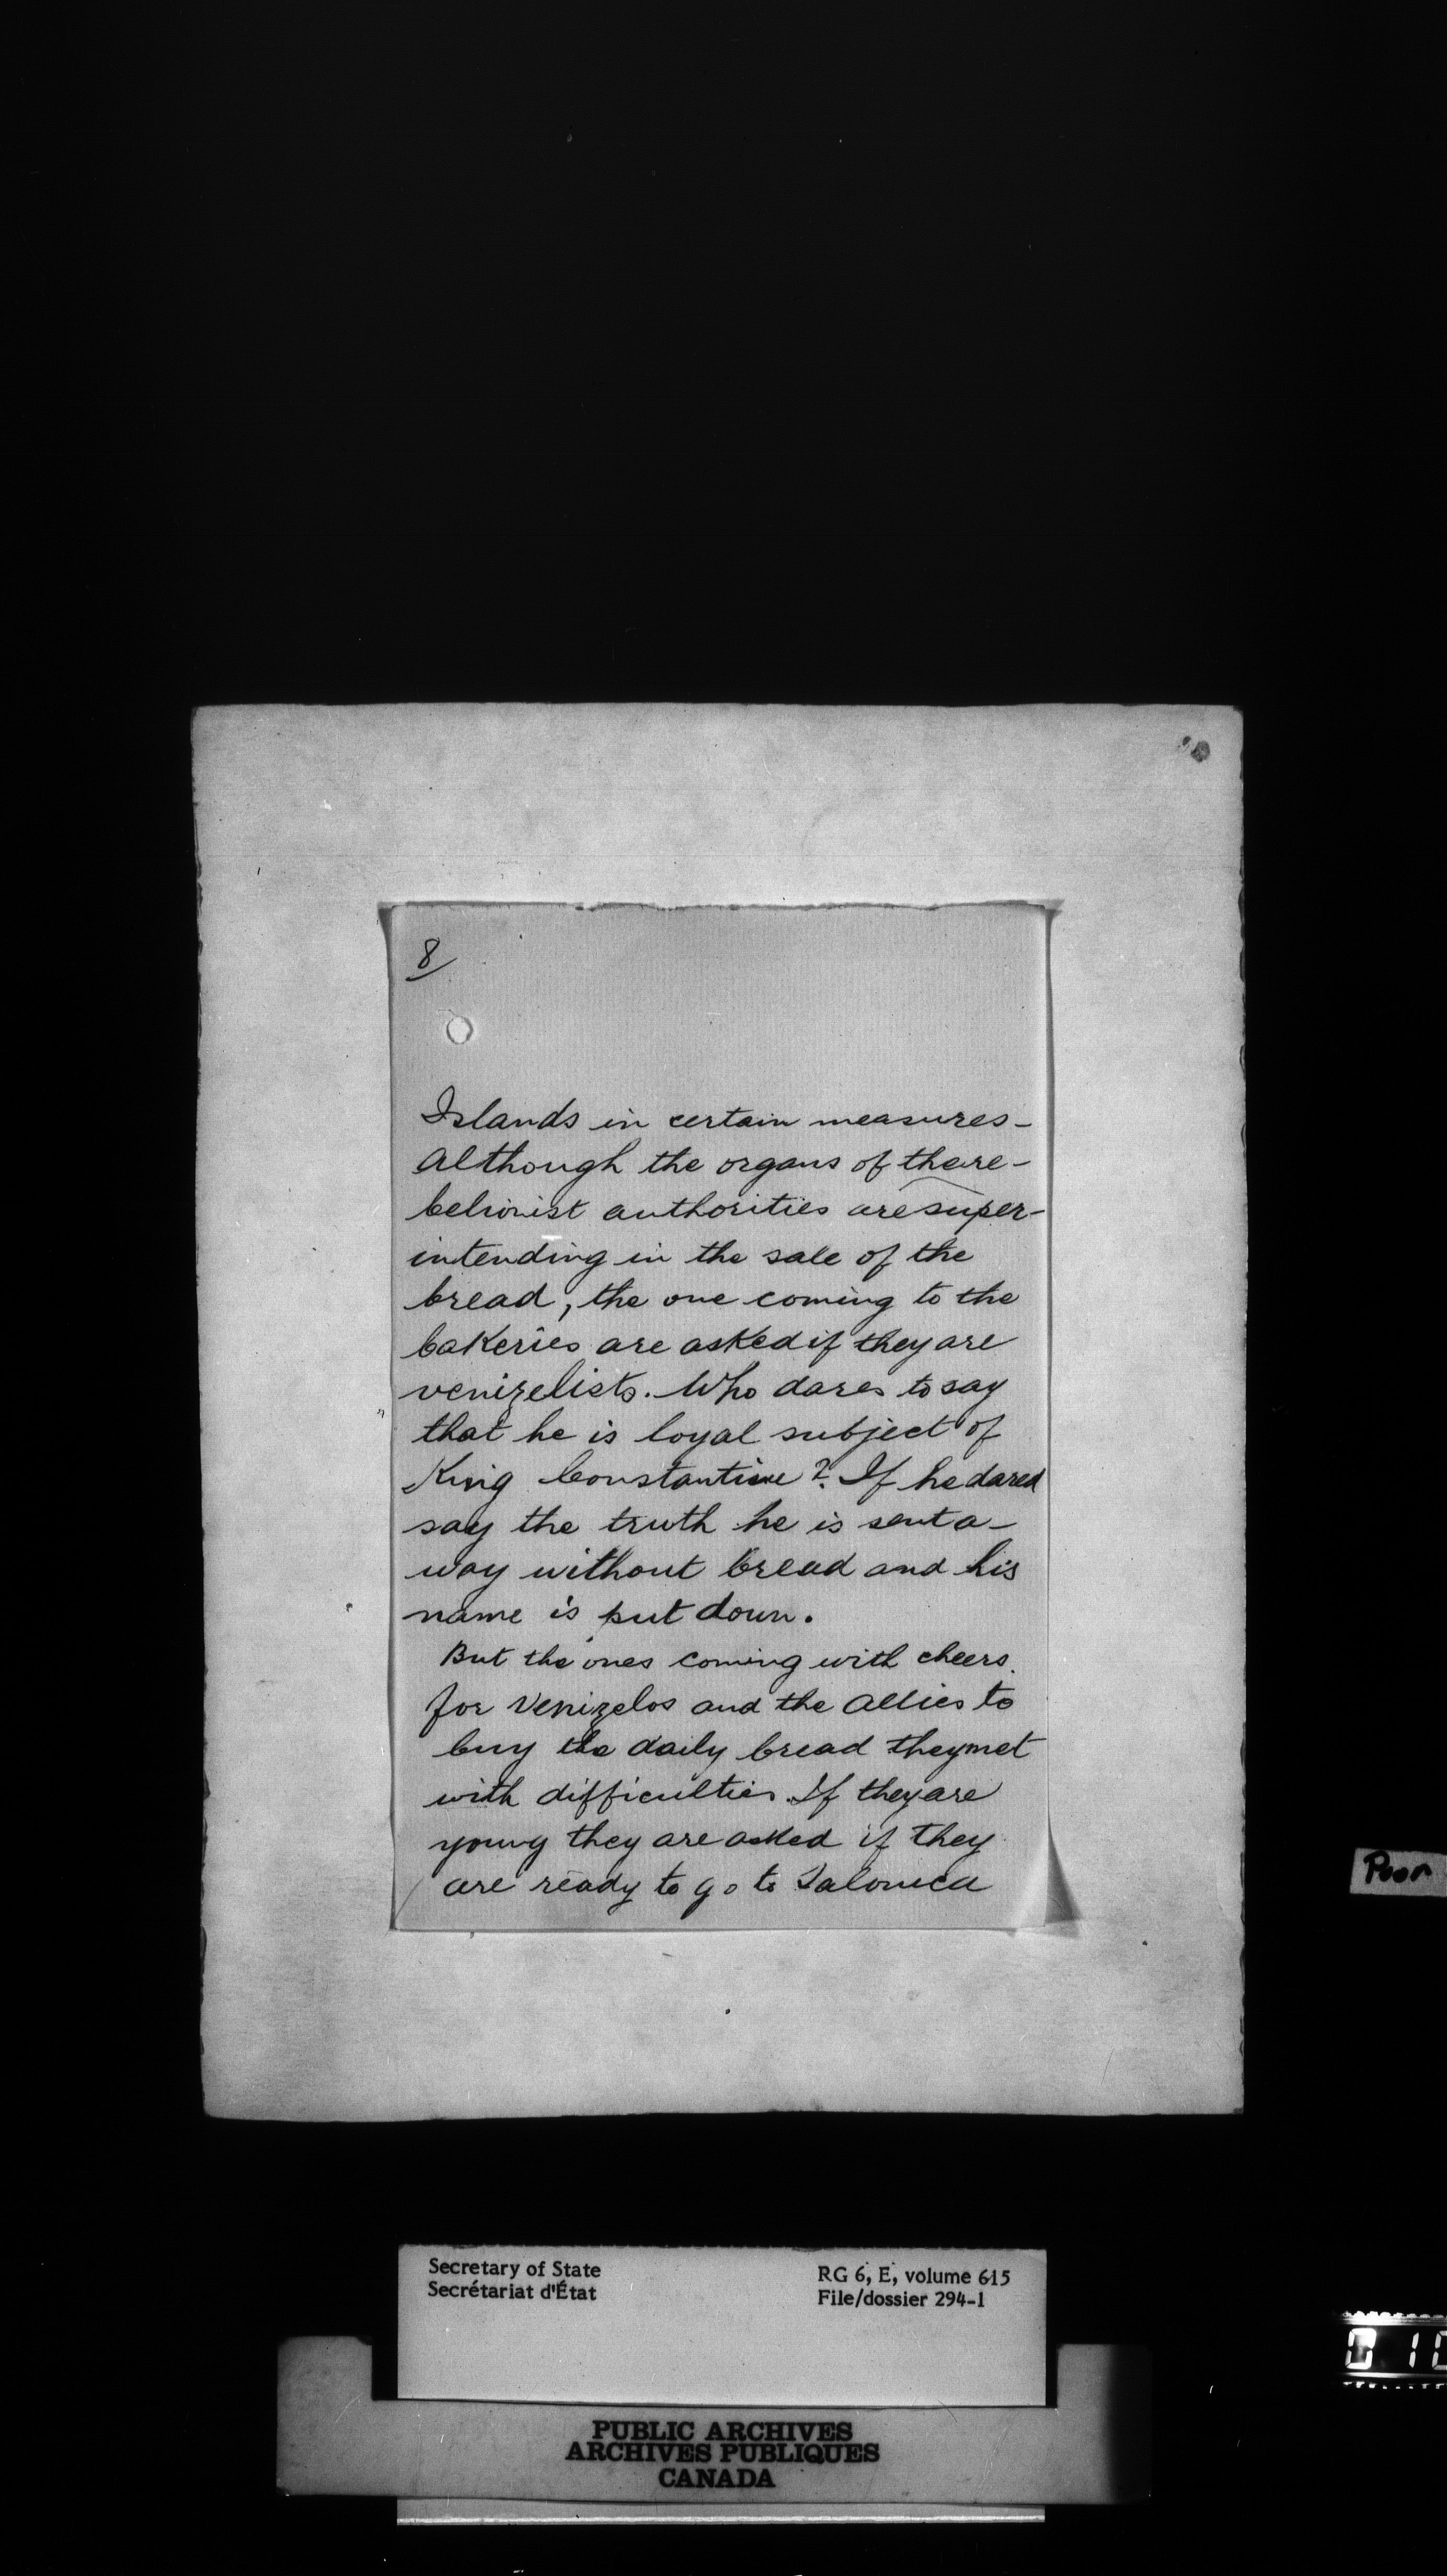 8
Islands in certain measures-
Although the organs of the re-
belionist authorities are super-
intending in the sale of the
bread, the one coming to the
bakeries are asked if they are
venizelists. Who dares to say
that he is loyal subject of
King Constantine? If he dared
say the truth he is sent a-
way without bread and his
name is put down.
But the ones coming with cheers
for Venizelos and the Allies to
buy the daily bread they met
with difficulties. If they are
young they are asked if they
are ready to go to Salonica
Poor
Secretary of State
Secrétariat d'État
RG 6, E, volume 615
File/dossier 294-1
PUBLIC ARCHIVES
ARCHIVES PUBLIQUES
CANADA